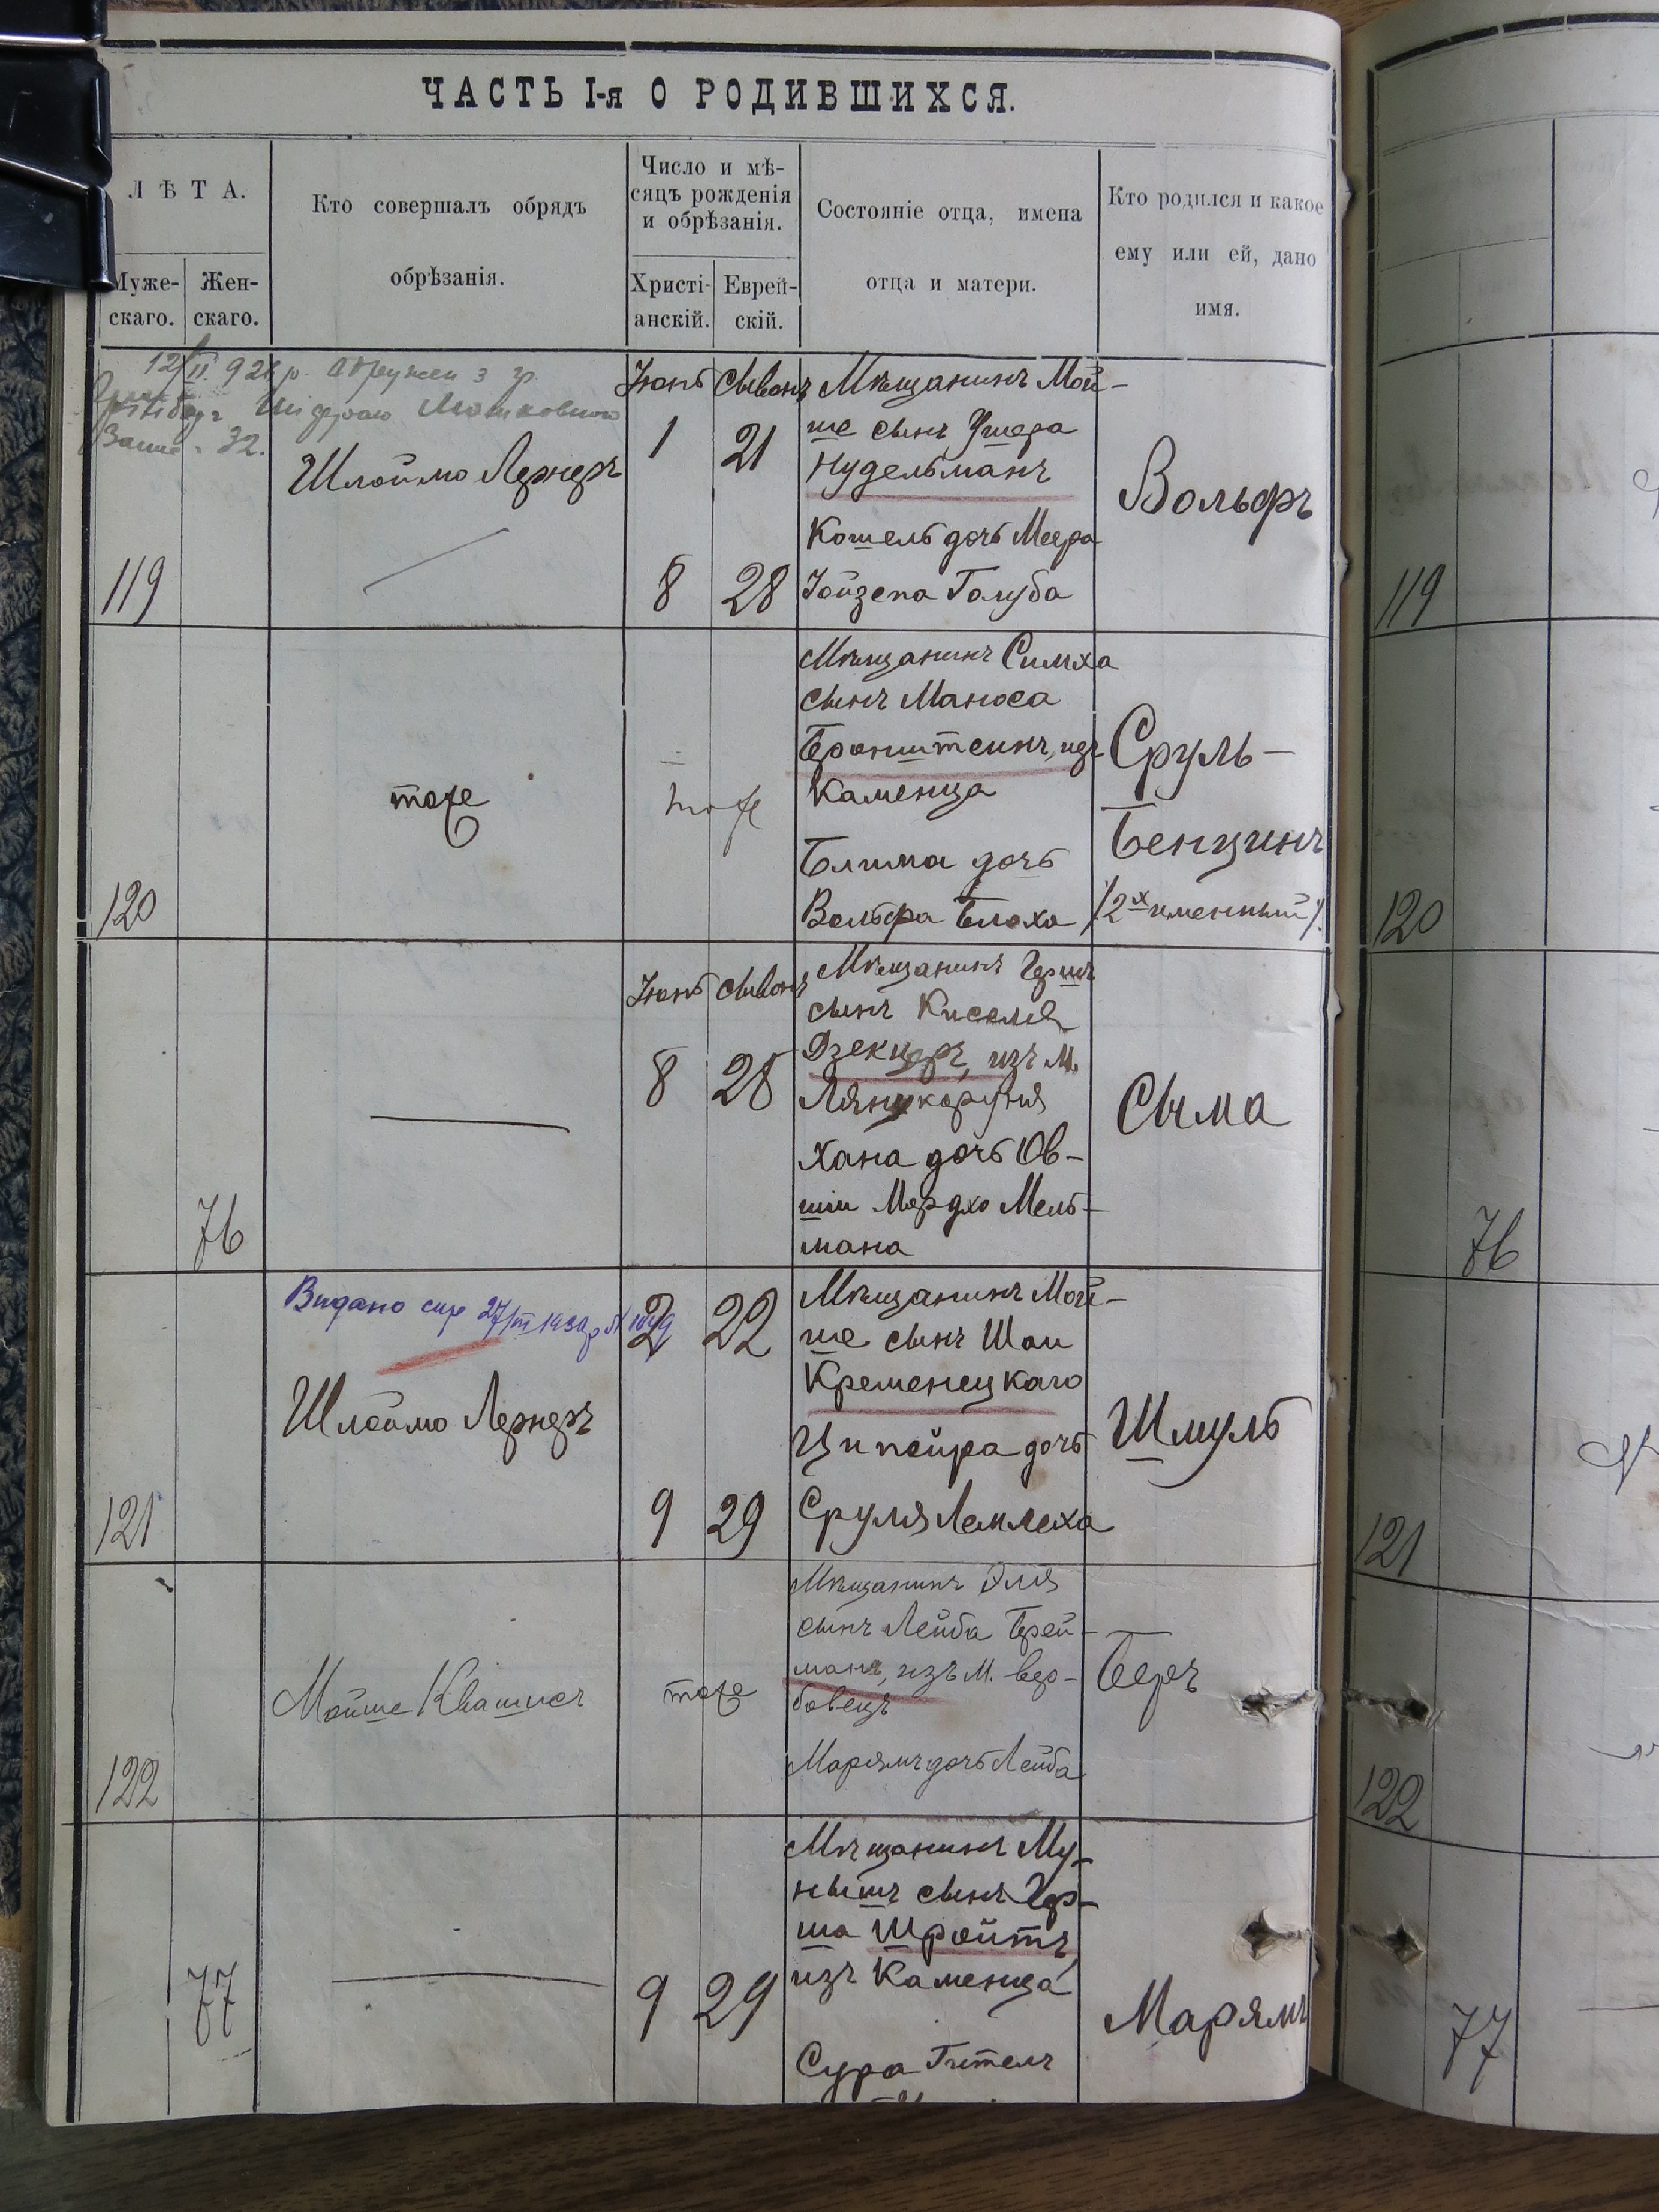 ЧАСТЬ I-я О РОДИВШИХСЯ.
ЛѢТА.
Муже-
скаго.
Жен-
скаго.
Кто совершалъ обрядъ
обрѣзанія.
Число и мѣ-
сяцъ рожденія
и обрѣзанія.
Христі-
анскій.
Еврей-
скій.
Состояніе отца, имена
отца и матери.
Кто родился и какое
ему или ей, дано
имя.
119
12/II 92 р. одружен з гр.
32.
Шлоймо Лернеръ
Іюнь
1
8
Сывонъ
21
28
Мѣщанинъ Мой-
ше сынъ Ушера
Нудельманъ
Кошель дочь Меера
Іойзепа Голуба
Вольфъ
119
120
тоже
тоже
Мѣщанинъ Симха
сынъ Маноса
Бронштеинъ, изъ
Каменца
Блима дочь
Вольфа Блоха
Сруль-
Бенцинъ
/2х именный/.
120
76
Іюнь
8
Сывонъ
28
Мѣщанинъ Гершъ
сынъ Киселя
Дзекцеръ, изъ м.
Лянцкоруня
Хана дочь Ов-
шіи Мордхо Мель-
мана
Сыма
76
121
Видано
Шлоймо Лернеръ
2
9
22
29
Мѣщанинъ Мой-
ше сынъ Шаи
Кременецкаго
Ципойра дочь
Сруля Лемлеха
Шмуль
121
122
Мойше Квашнеъ
тоже
Мѣщанинъ Эля
сынъ Лейба Брей-
манъ, изъ м. Вер-
бовецъ
Марямъ дочь Лейба
Беръ
122
77
9
29
Мѣщанинъ Му-
нышъ сынъ Гер-
ша Шройтъ,
изъ Каменца
Сура Гителъ
Марямъ
77